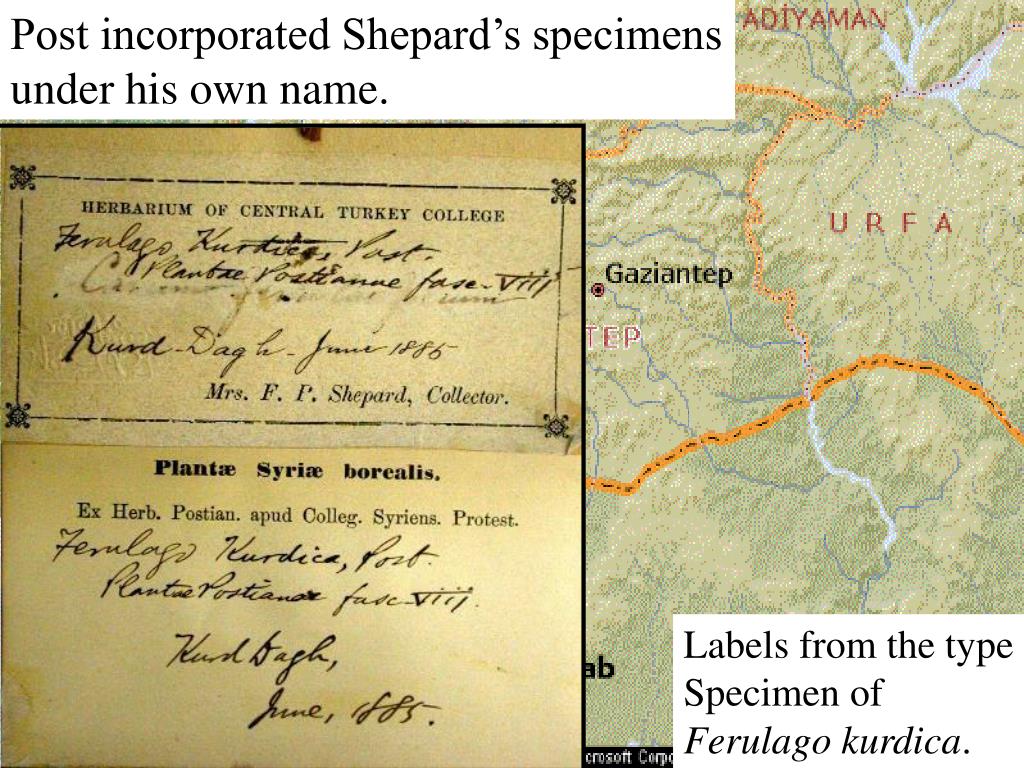 Post incorporated Shepard’s specimens
under his own name.
ADIYAMAN
URFA
Gaziantep
TEP
ab
HERBARIUM OF CENTRAL TURKEY COLLEGE
Ferulago Kurdica, Post.
Plantae Postianae fasc. VIII
Kurd-Dagh - June 1885
Mrs. F. P. Shepard, Collector.
Plantæ Syriæ borealis.
Ex Herb. Postian. apud Colleg. Syriens. Protest.
Ferulago Kurdica, Post.
Plantae Postianae fasc-VIII.
Kurd Dagh,
June, 1885.
Labels from the type
Specimen of
Ferulago kurdica.
crosoft Corpo